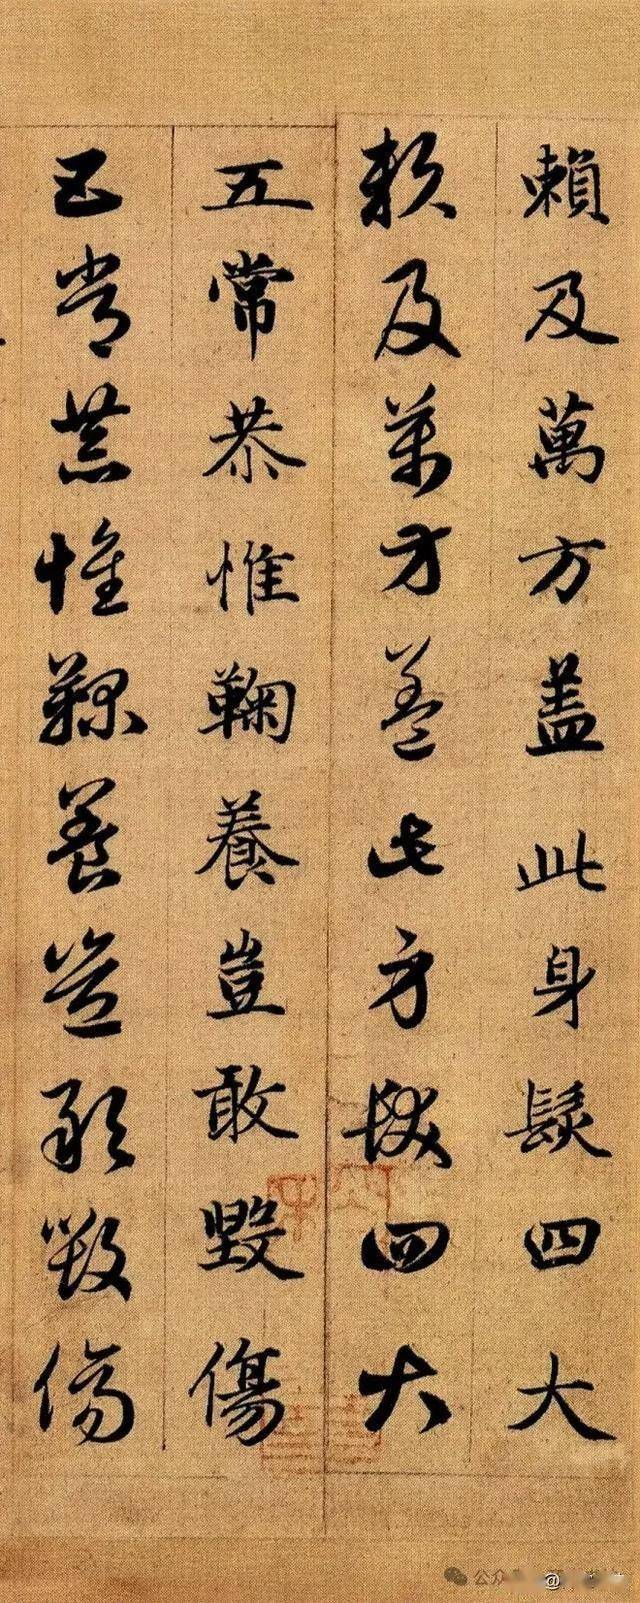 賴及萬方盖此身髮四大
賴及萬方盖此身髮四大
五常恭惟鞠養豈敢毀傷
五常恭惟鞠養豈敢毀傷
公众
@